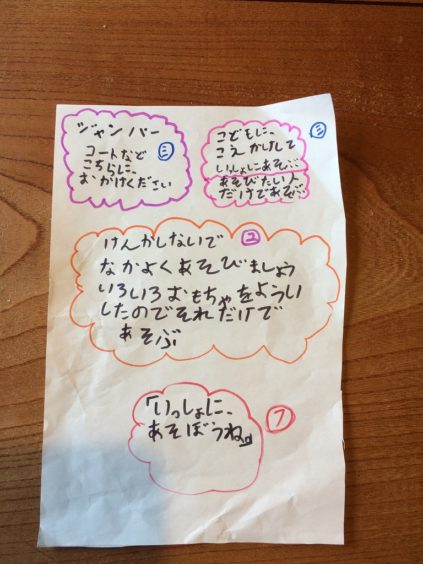 ジャンパー
コートなど
こちらに、
おかけください
ミ
こどもに、
こえかけして
いっしょにあそぶ
あそびたい人
だけであそぶ
ミ
けんかしないで
ユ
なかよくあそびましょう
いろいろおもちゃをようい
したのでそれだけで
あそぶ
「いっしょに、
あそぼうね」
フ